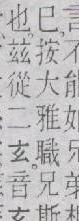 言不能如兄弟
已。按大雅職兄斯
也。茲從二玄。音玄